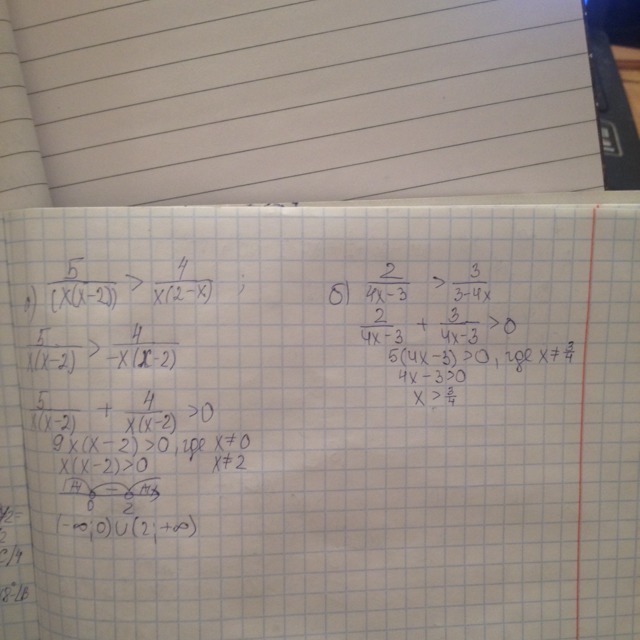 5/(x(x-2)) > 4/(x(2-x)) ;
5/(x(x-2)) > 4/(-x(x-2))
5/(x(x-2)) + 4/(x(x-2)) > 0
9x(x-2)>0, где x≠0
x(x-2)>0 x≠2
0 2
(-∞;0)∪(2;+∞)
б) 2/(4x-3) > 3/(3-4x)
2/(4x-3) + 3/(4x-3) > 0
5(4x-3)>0, где x≠3/4
4x-3>0
x>3/4